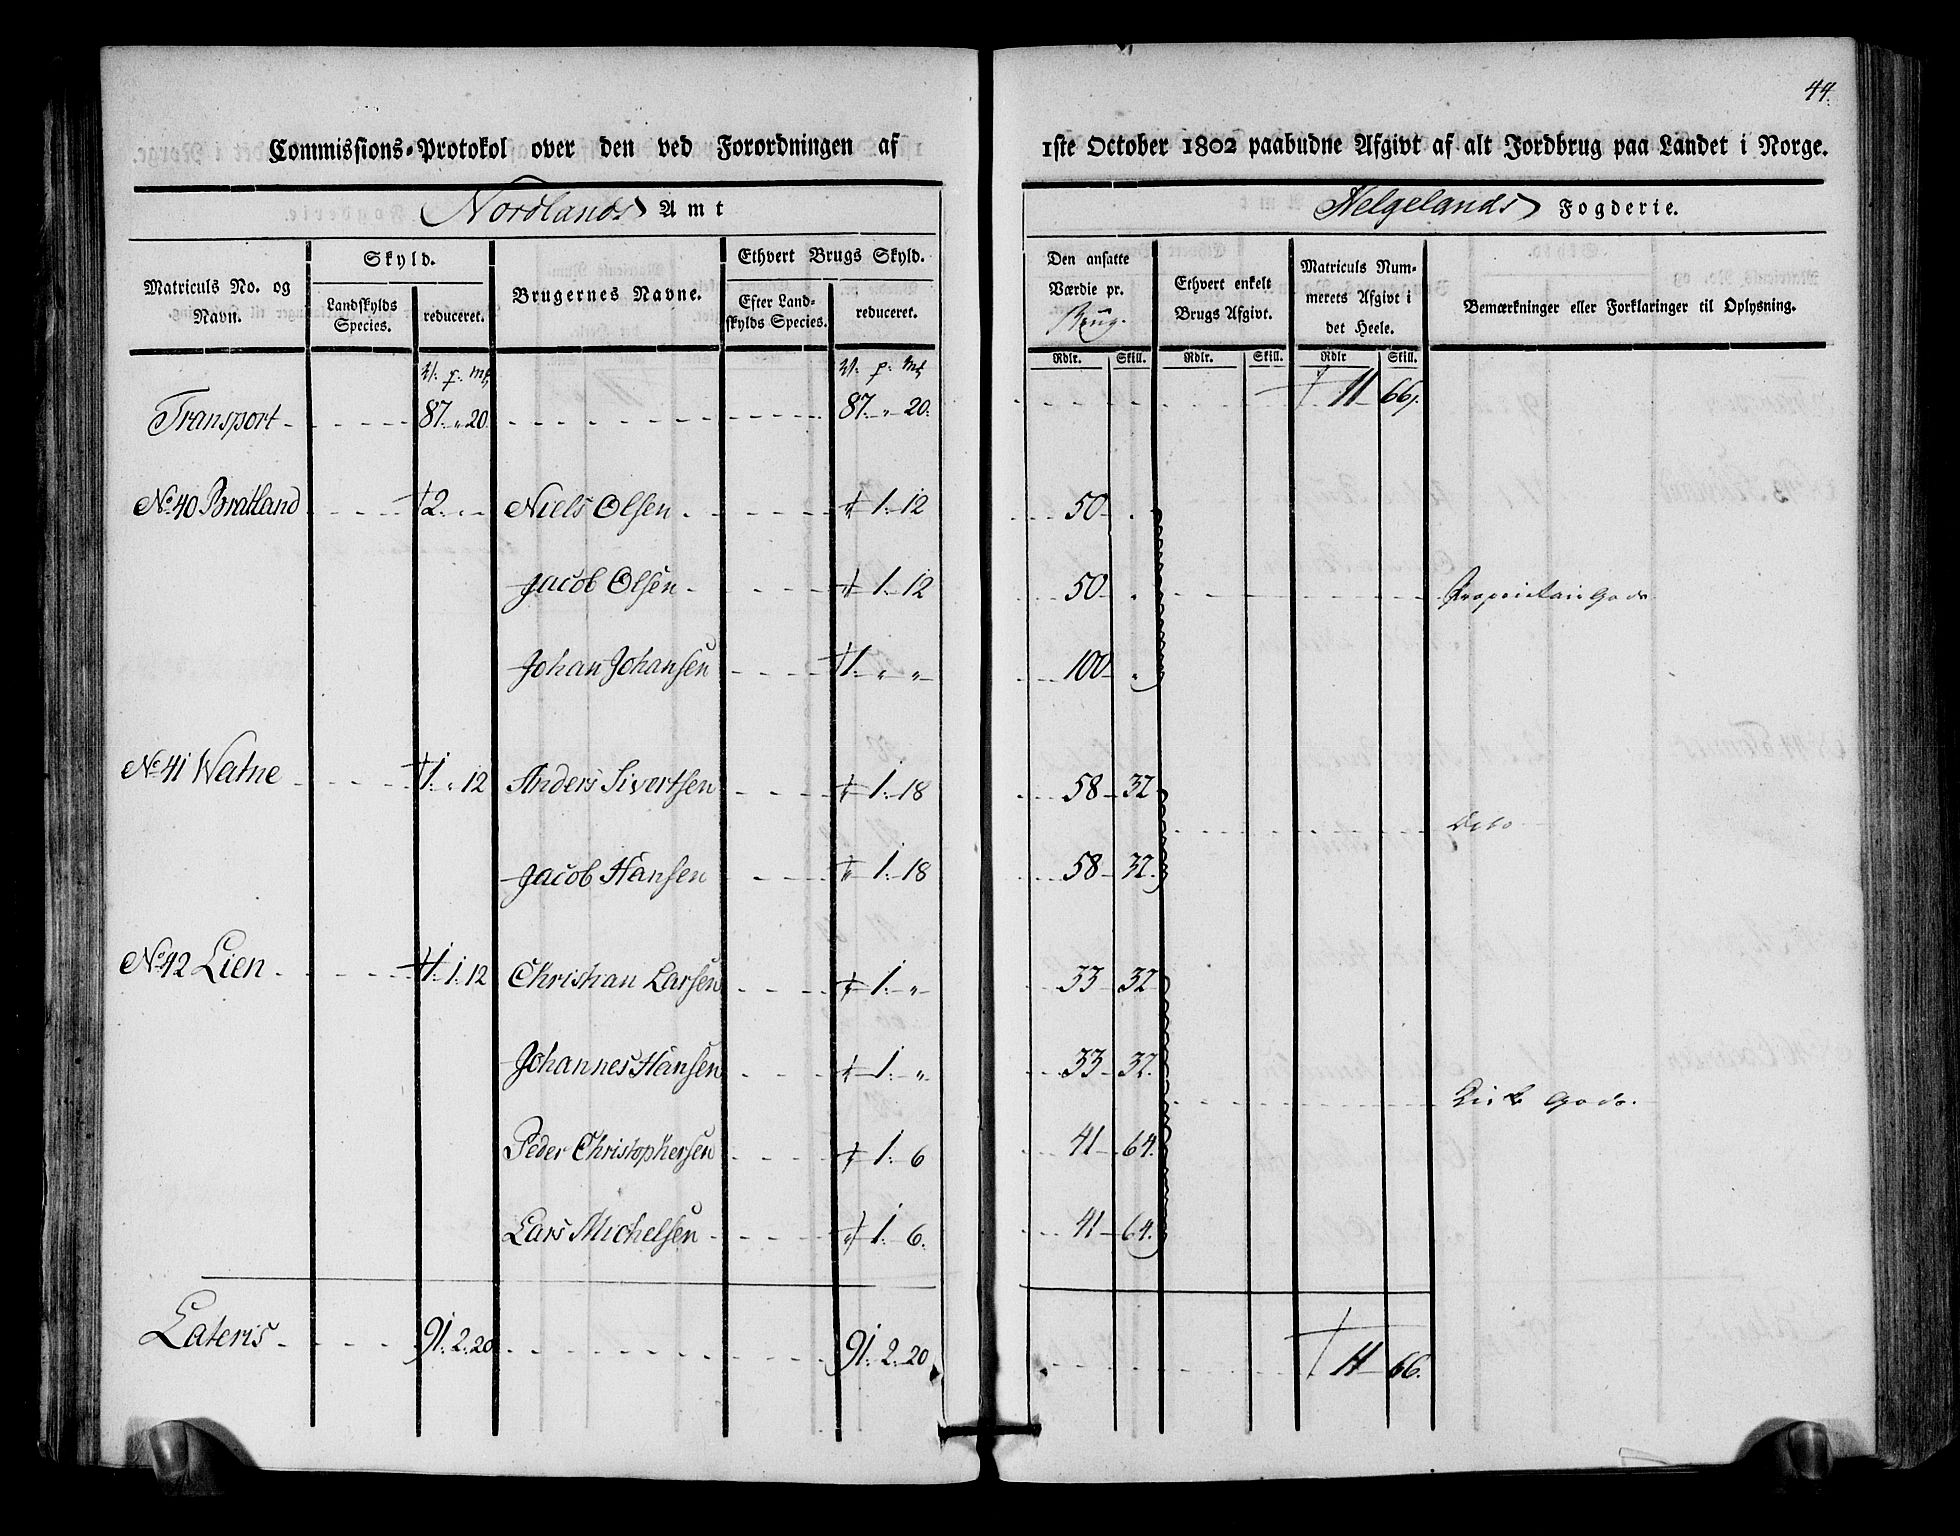 44.
Commissions-Protokol over den ved Forordningen af 1ste October 1802 paabudne Afgivt af alt Jordbrug paa Landet i Norge.
Nordlands Amt
Helgelands Fogderie.
Matriculs No. og Navn.
Skyld.
Landskylds Species.
reduceret.
Brugernes Navne.
Ethvert Brugs Skyld.
Efter Landskylds Species.
reduceret.
Den ansatte Værdie pr. Brug.
Ethvert enkelt Brugs Afgivt.
Matriculs Nummerets Afgivt i det Heele.
Bemærkninger eller Forklaringer til Oplysning.
Rdlr. Skill. Rdlr. Skill. Rdlr Skill.
V: p: mk V: p: mk
Transport 87. " 20. 87. " 20. 11 66.
No. 40 Bratland 2. " - Niels Olsen " 1. 12 50 "
Jacob Olsen " 1. 12 50 " Proprietair Gods
Johan Johansen 1. " " 100 "
No. 41 Watne 1. " 12 Anders Sivertsen " 1. 18 58 32
Dito
Jacob Hansen " 1. 18 58 32.
No. 42 Lien 1. 1. 12 Christian Larsen " 1. " 33 32
Johannes Hansen " 1. " 33 32.
Kirke Gods.
Peder Christophersen " 1. 6 41 64.
Lars Michelsen " 1. 6. 41 64.
Lateris 91. 2. 20 91. 2. 20 11 66.